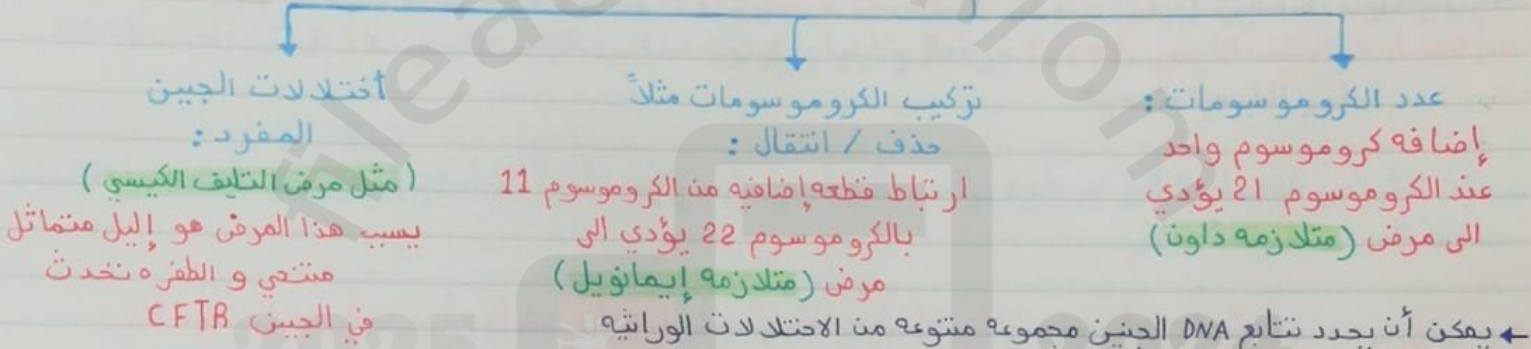 عدد الكروموسومات :
إضافه كروموسوم واحد
عند الكروموسوم 21 يؤدي
الى مرض (متلازمه داون)
تركيب الكروموسومات مثلاً
حذف / انتقال :
ارتباط قطعه إضافيه من الكروموسوم 11
بالكروموسوم 22 يؤدي الى
مرض (متلازمه إيمانويل)
أختلالات الجين
المفرد :
(مثل مرض التليف الكيسي)
يسبب هذا المرض هو إليل متماثل
متنحي و الطفره تحدث
في الجين CFTR
يمكن أن يحدد تتابع DNA الجنين مجموعه متنوعه من الاختلالات الوراثيه